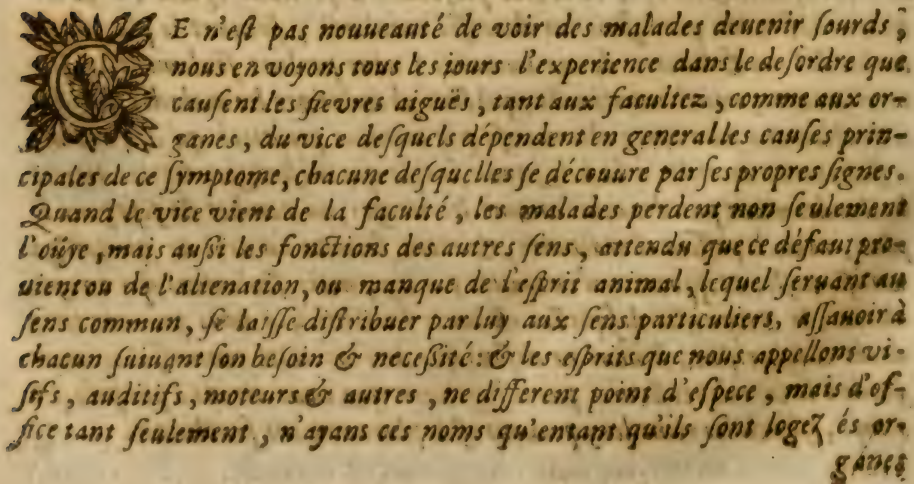 CE n'eſt pas nouueauté de voir des malades deuenir ſourds,
nous en voyons tous les iours l'experience dans le deſordre que
cauſent les fievres aiguës, tant aux facultez, comme aux or-
ganes, du vice deſquels dépendent en general les cauſes prin-
cipales de ce ſymptome, chacune deſquelles ſe découure par ſes propres ſignes.
Quand le vice vient de la faculté, les malades perdent non ſeulement
l'oüye, mais auſſi les fonctions des autres ſens, attendu que ce défaut pro-
uient ou de l'alienation, ou manque de l'eſprit animal, lequel ſeruant au
ſens commun, ſe laiſſe diſtribuer par luy aux ſens particuliers, aſſauoir à
chacun ſuiuant ſon beſoin & neceſſité: & les eſprits que nous appellons vi-
ſifs, auditifs, moteurs & autres, ne different point d'eſpece, mais d'of-
fice tant ſeulement, n'ayans ces noms qu'entant qu'ils ſont logez és or-
ganes